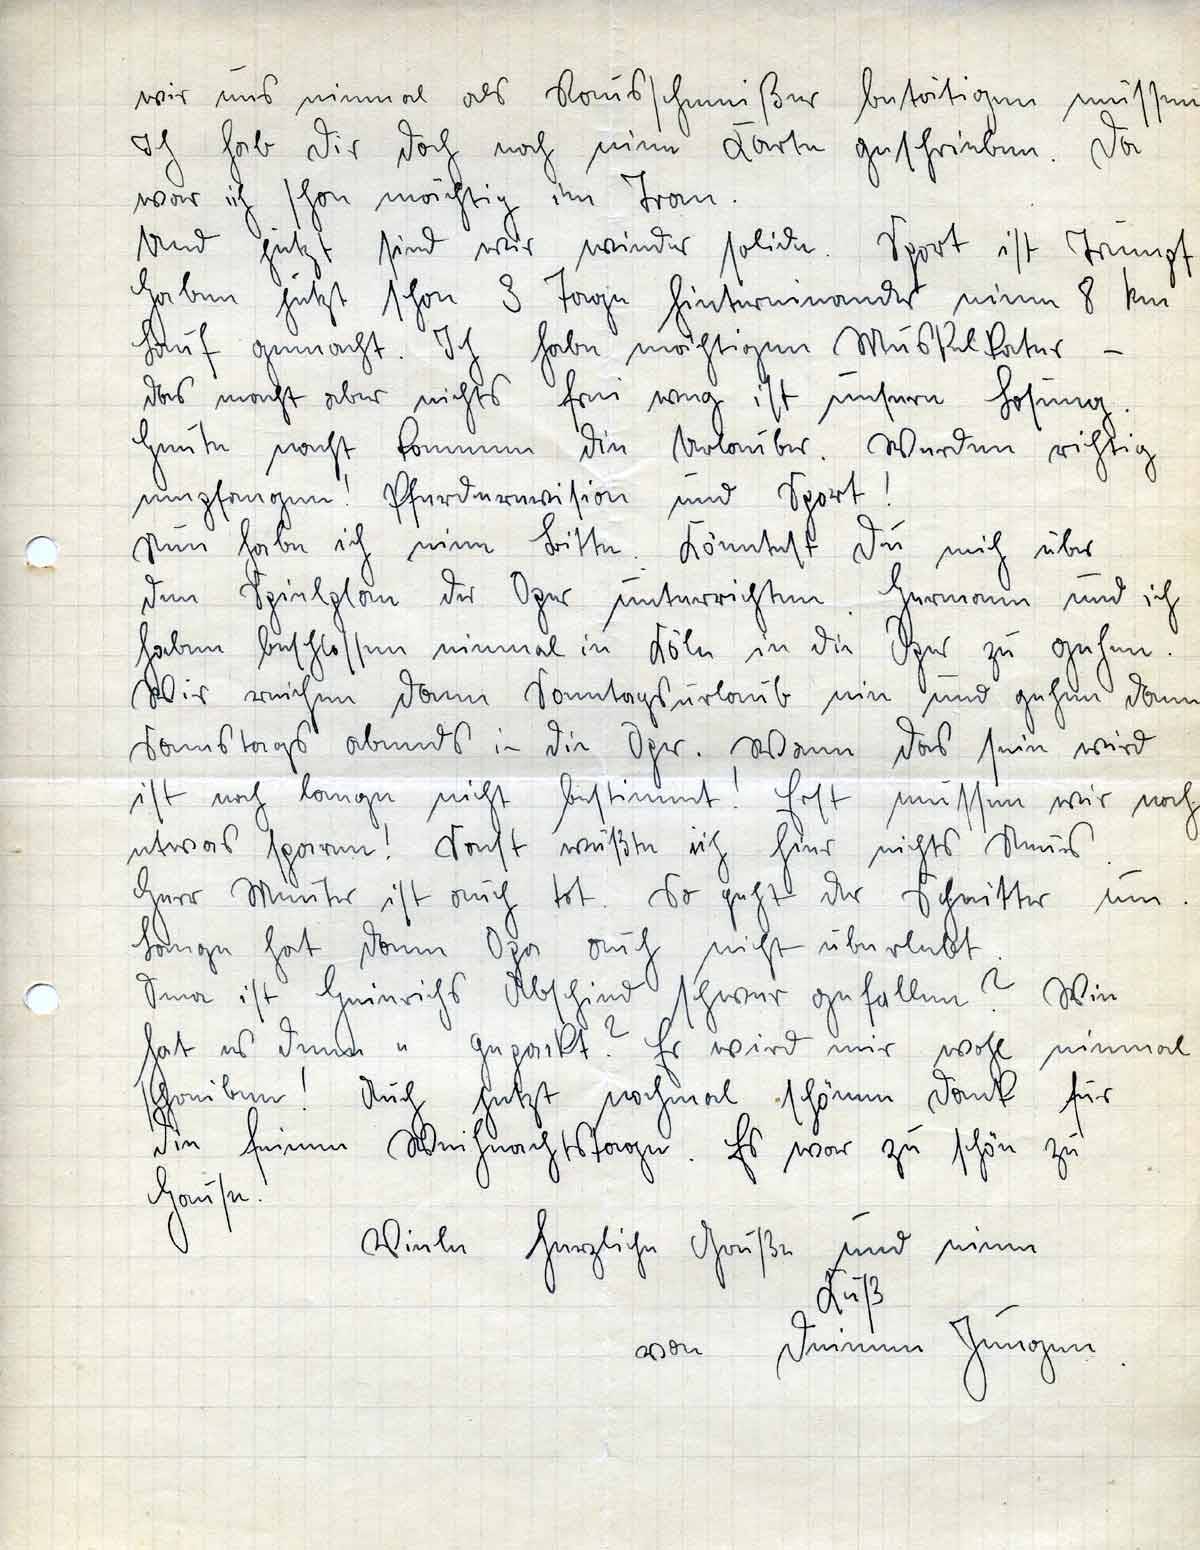 wir uns einmal als Rausschmeißer betätigen müssen
Ich hab Dir doch noch eine Karte geschrieben. Da
war ich schon mächtig im Tran.
Und jetzt sind wir wieder solide. Sport ist Trumpf
Haben jetzt schon 3 Tage hintereinander einen 8 km
Lauf gemacht. Ich habe mächtigen Muskelkater –
das macht aber nichts frei weg ist unsere Losung.
Heute nacht kommen die Urlauber. Werden richtig
empfangen! Pferderevision und Sport!
Nun habe ich eine Bitte. Könntest Du mich über
den Spielplan der Oper unterrichten. Hermann und ich
haben beschlossen einmal in Köln in die Oper zu gehen.
Wir reichen dann Sonntagsurlaub ein und gehen dann
Samstags abends in die Oper. Wann das sein wird
ist noch lange nicht bestimmt! Erst müssen wir noch
etwas sparen! Sonst wüßte ich hier nichts Neues.
Herr Meuter ist auch tot. So geht der Schnitter um.
Lange hat dann Opa auch nicht überlebt.
Dir ist Heinrichs Abschied schwer gefallen? Wie
hat es denn " gepackt? Er wird mir wohl einmal
schreiben! Auch jetzt nochmal schönen Dank für
die feinen Weihnachtstage. Es war zu schön zu
Hause.
Viele herzliche Grüße und einen
Kuß
von Deinem Jungen.